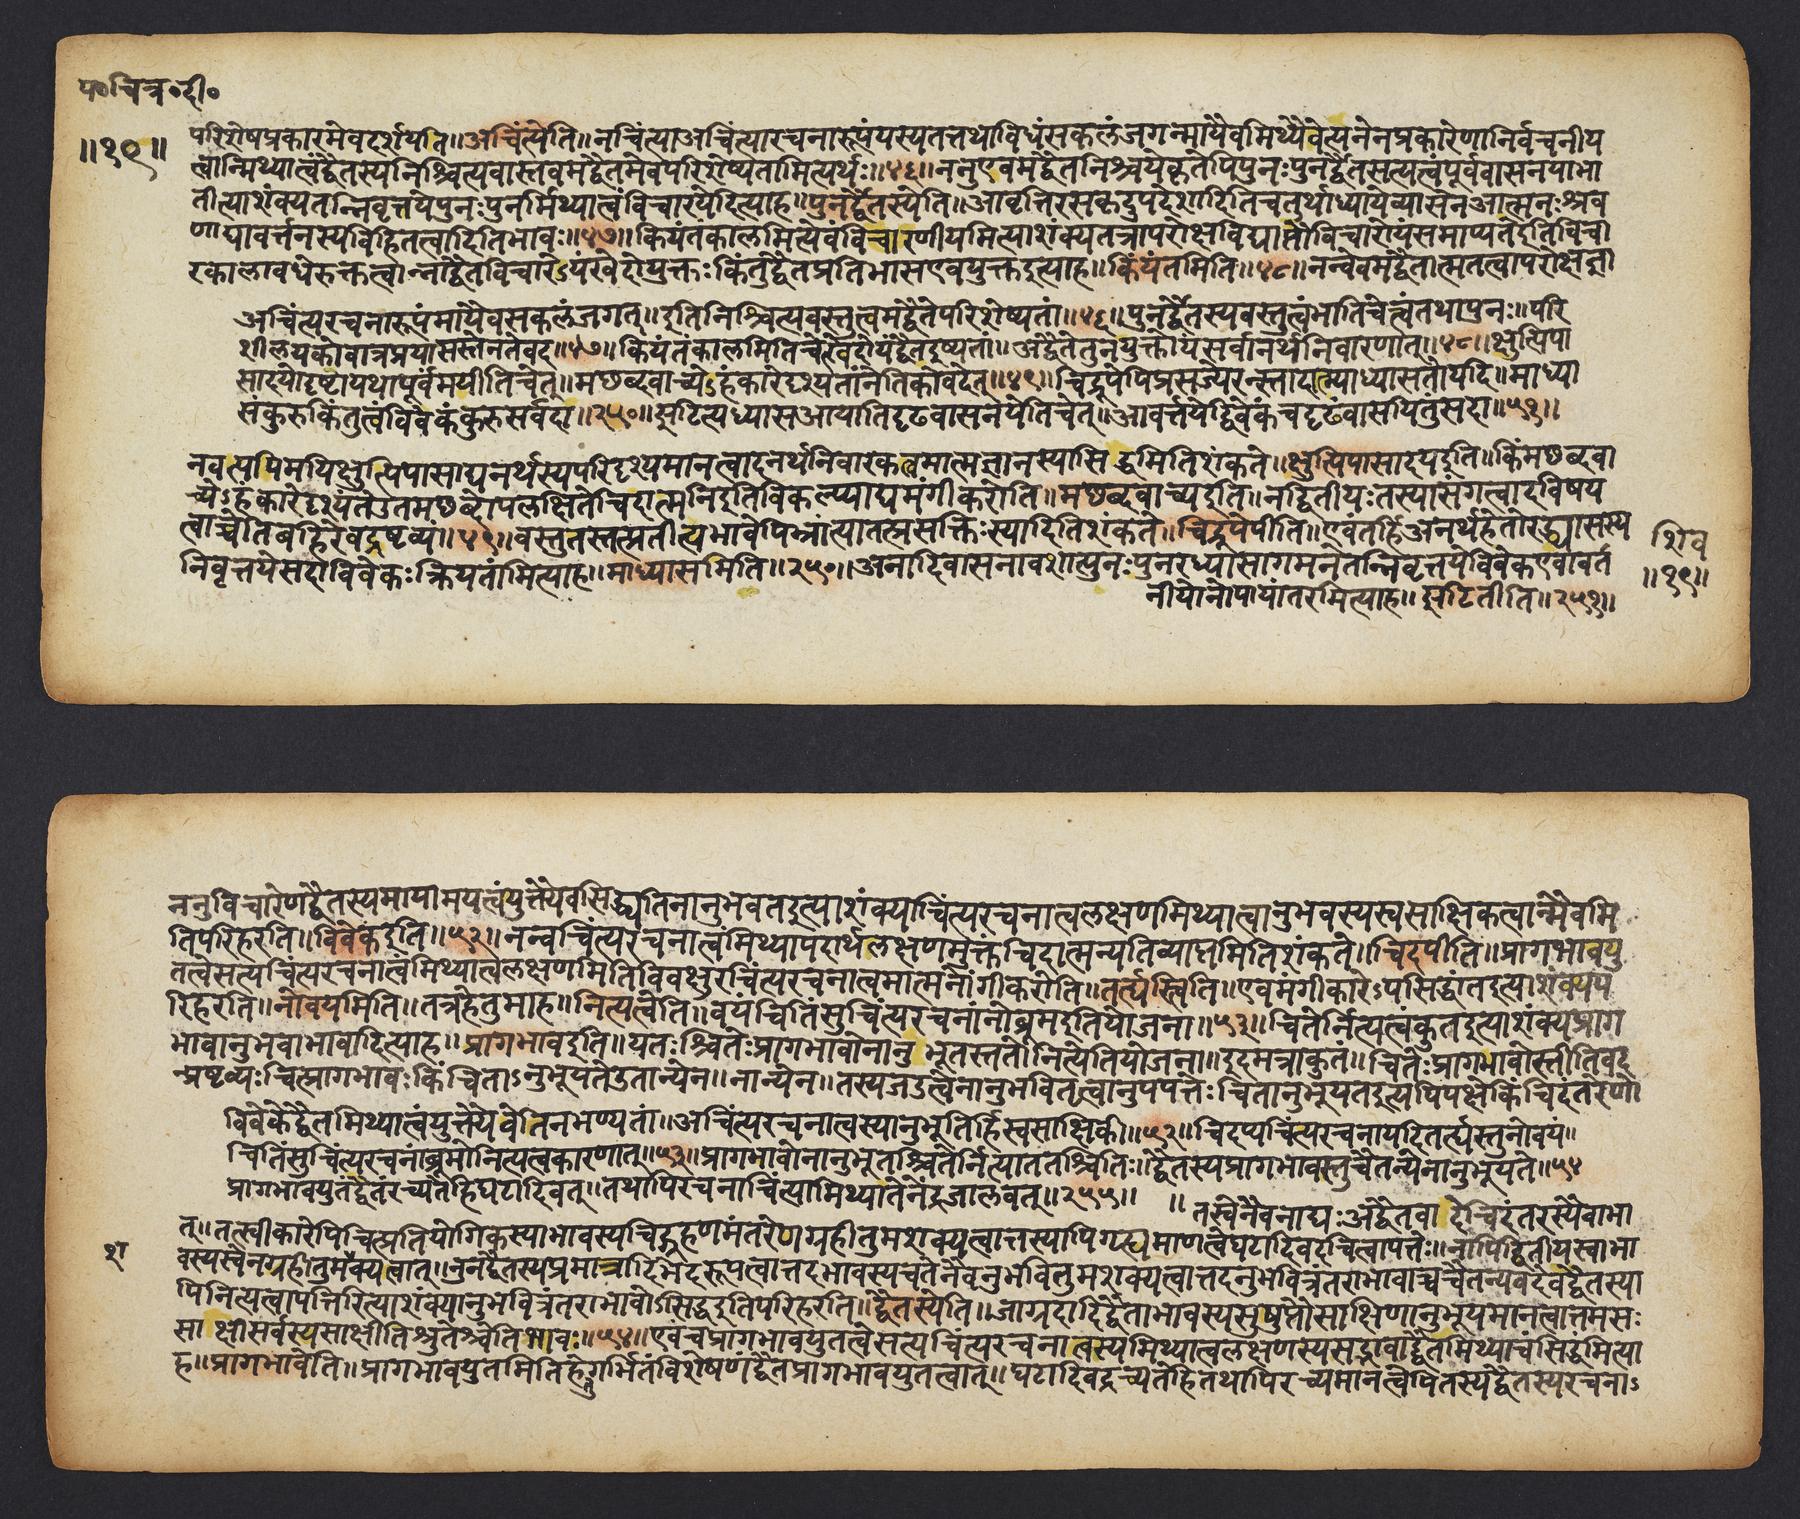 प०चित्र०दी०
॥१९॥
परिशेषप्रकारमेवदर्शयति॥अचिंत्येति॥नचिंत्याअचिंत्यारचनारूपंयस्यतत्तथाविधंसकलंजगन्मायैवमिथ्यैवेत्यनेनप्रकारेणानिर्वचनीय
त्वान्मिथ्यात्वंद्वैतस्यनिश्चित्यवास्तवमद्वैतमेवपरिशेष्यतामित्यर्थः॥४६॥ननुएवमद्वैतनिश्चयेकृतेपिपुनःपुनर्द्वैतसत्यत्वंपूर्ववासनयाभा
तीत्याशंक्यतन्निवृत्तयेपुनःपुनर्मिथ्यात्वंविचारयेदित्याह॥पुनर्द्वैतस्येति॥आवृत्तिरसकृदुपदेशादितिचतुर्थाध्यायेव्यासेनआत्मनःश्रव
णाद्यावर्त्तनस्यविहितत्वादितिभावः॥४७॥कियंतकालमित्येवंविचारणीयमित्याशंक्यतत्रापरोक्षविद्याप्तौविचारोयंसमाप्यतेइतिविचा
रकालावधेरुक्तत्वान्नाद्वैतविचारेऽयंखेदोयुक्तःकिंतुद्वैतप्रतिभासएवयुक्तइत्याह॥कियंतमिति॥४८॥नन्वेवमद्वैतात्मतत्वापरोक्षज्ञा
अचिंत्यरचनारूपंमायैवसकलंजगत्॥इतिनिश्चित्यवस्तुत्वमद्वैतेपरिशेष्यतां॥४६॥पुनर्द्वैतस्यवस्तुत्वंभातिचेत्त्वंतथापुनः॥परि
शीलयकोवात्रप्रयासस्तेनतेवद॥४७॥कियंतंकालमितिचेत्खेदोयंद्वैतइष्यतां॥अद्वैतेतुनयुक्तोयंसर्वानर्थनिवारणात्॥४८॥क्षुत्पिपा
सादयोदृष्टायथापूर्वंमयीतिचेत्॥मच्छब्दवाच्येऽहंकारेदृश्यतांनेतिकोवदेत्॥४९॥चिद्रूपेपिप्रसज्येरन्स्तादात्म्याध्यासतोयदि॥माध्या
संकुरुकिंतुत्वंविवेकंकुरुसर्वदा॥२५०॥झटित्यध्यासआयातिदृढवासनयेतिचेत्॥आवर्त्तयेद्विवेकंचदृढंवासयितुंसदा॥५१॥
नवत्यपिमयिक्षुत्पिपासाद्यनर्थस्यपरिदृश्यमानत्वादनर्थनिवारकत्वमात्मज्ञानस्यासिद्धमितिशंकते॥क्षुत्पिपासादयइति॥किंमच्छब्दवा
च्येऽहंकारेदृश्यंतेउतमच्छब्दोपलक्षितेचिदात्मनिइतिविकल्प्याद्यमंगीकरोति॥मच्छब्दवाच्यइति॥नद्वितीयःतस्यासंगत्वादविषय
त्वाच्चेतिबहिरेवद्रष्टव्यं॥४९॥वस्तुतस्तत्प्रतीत्यभावेपिभ्रांत्यातत्प्रसक्तिःस्यादितिशंकते॥चिद्रूपेपीति॥एवंतर्हिअनर्थहेतोरध्यासस्य
निवृत्तयेसदाविवेकःक्रियतामित्याह॥माध्यासमिति॥२५०॥अनादिवासनावशात्पुनःपुनरध्यासागमनेतन्निवृत्तयेविवेकएवावर्त
नीयोनोपायांतरमित्याह॥झटितीति॥२५१॥
शिव
॥१९॥
ननुविचारेणद्वैतस्यमायामयत्वंयुक्त्यैवसिद्ध्यतिनानुभवतइत्याशंक्याचिंत्यरचनात्वलक्षणमिथ्यात्वानुभवस्यस्वसाक्षिकत्वान्मैवमि
तिपरिहरति॥विवेकइति॥५२॥नन्वचिंत्यरचनात्वंमिथ्यापदार्थलक्षणमुक्तंचिदात्मन्यतिव्याप्तमितिशंकते॥चिदपीति॥प्रागभावयु
तत्वेसत्यचिंत्यरचनात्वंमिथ्यात्वलक्षणमितिविवक्षुरचिंत्यरचनात्वमात्मनोंगीकरोति॥तर्त्ह्यस्त्विति॥एवमंगीकारेऽपसिद्धांतइत्याशंक्यप
रिहरति॥नोवयमिति॥तत्रहेतुमाह॥नित्यत्वेति॥वयंचितिंसुचिंत्यरचनांनोब्रूमइतियोजना॥५३॥चितेर्नित्यत्वंकुतइत्याशंक्यप्राग
भावानुभवाभावादित्याह॥प्रागभावइति॥यतःश्चितेःप्रागभावोनानुभूतस्ततोनित्येतियोजना॥इदमत्राकुतं॥चितेःप्रागभावोस्तीतिवद
न्प्रष्टव्यःचित्प्रागभावःकिंचिताऽनुभूयतेउतान्येन॥नान्येन॥तस्यजडत्वेनानुभवितृत्वानुपपत्तेःचितानुभूयतइत्यपिपक्षेकिंचिदंतरेणो
विवेकेद्वैतमिथ्यात्वंयुक्त्यैवेतिनभण्यतां॥अचिंत्यरचनात्वस्यानुभूतिर्हिस्वसाक्षिकी॥५२॥चिदप्यचिंत्यरचनायदितर्त्ह्यस्तुनोवयं॥
चितिंसुचिंत्यरचनांब्रूमोनित्यत्वकारणात्॥५३॥प्रागभावोनानुभूतश्चितेर्नित्याततश्चितिः॥द्वैतस्यप्रागभावस्तुचैतन्येनानुभूयते॥५४
प्रागभावयुतंद्वैतंरच्यतेहिघटादिवत्॥तथापिरचनाचिंत्यामिथ्यातेनेंद्रजालवत्॥२५५॥
॥तस्वेनैवनाद्यःअद्वैतवादेचिदंतरस्यैवाभा
त्॥तत्स्वीकारेपिचित्प्रतियोगिकस्याभावस्यचिद्ग्रहणमंतरेणग्रहीतुमशक्यत्वात्तस्यापिगृह्यमाणत्वेघटादिवदचित्वापत्तेः॥नापिद्वितीयःस्वाभा
वस्यस्वेनग्रहीतुमशक्यत्वात्॥नुनद्वैतस्यप्रमात्रादिभेदरूपत्वात्तदभावस्यचतेनैवनुभवितुमशक्यत्वात्तदनुभवित्रंतराभावाच्चचैतन्यवदेवद्वैतस्या
श
पिनित्यत्वापत्तिरित्याशंक्यानुभवित्रंतराभावोऽसिद्धइतिपरिहरति॥द्वैतस्येति॥जाग्रदादिद्वैताभावस्यसुषुप्तौसाक्षिणानुभूयमानत्वात्तमसः
साक्षीसर्वस्यसाक्षीतिश्रुतेश्चेतिभावः॥५४॥एवंचप्रागभावयुतत्वेसत्यचिंत्यरचनात्वस्यमिथ्यात्वलक्षणस्यसद्भावाद्द्वैतमिथ्यात्वंसिद्धमित्या
ह॥प्रागभावेति॥प्रागभावयुतमितिहेतुगर्भितंविशेषणंद्वैतप्रागभावयुतत्वात्॥घटादिवद्रच्यतेहितथापिरच्यमानत्वेपितस्यद्वैतस्यरचनाऽ